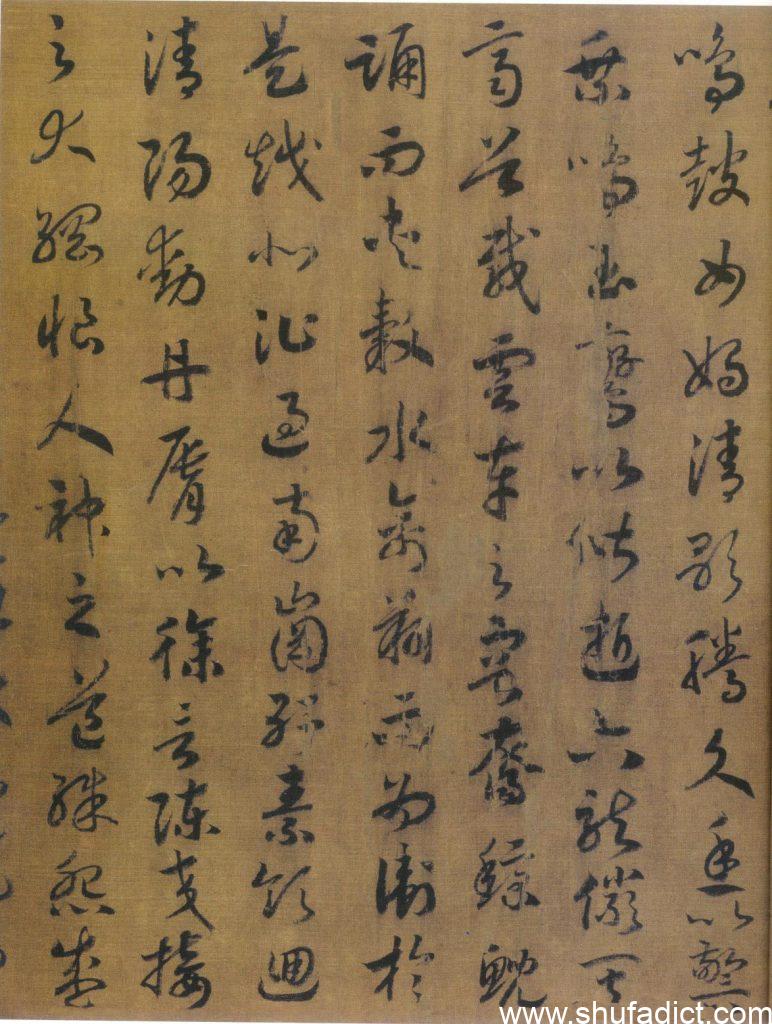 鳴鼓女媧清歌騰文魚以警
乘鳴玉鸞以偕逝六龍儼其
齊首載雲車之容裔鯨鯢
踊而夾轂水禽翔而為衛於
是越北沚過南岡紆素領迴
清陽動丹脣以徐言陳交接
之大綱恨人神之道殊怨盛
www.shufadict.com